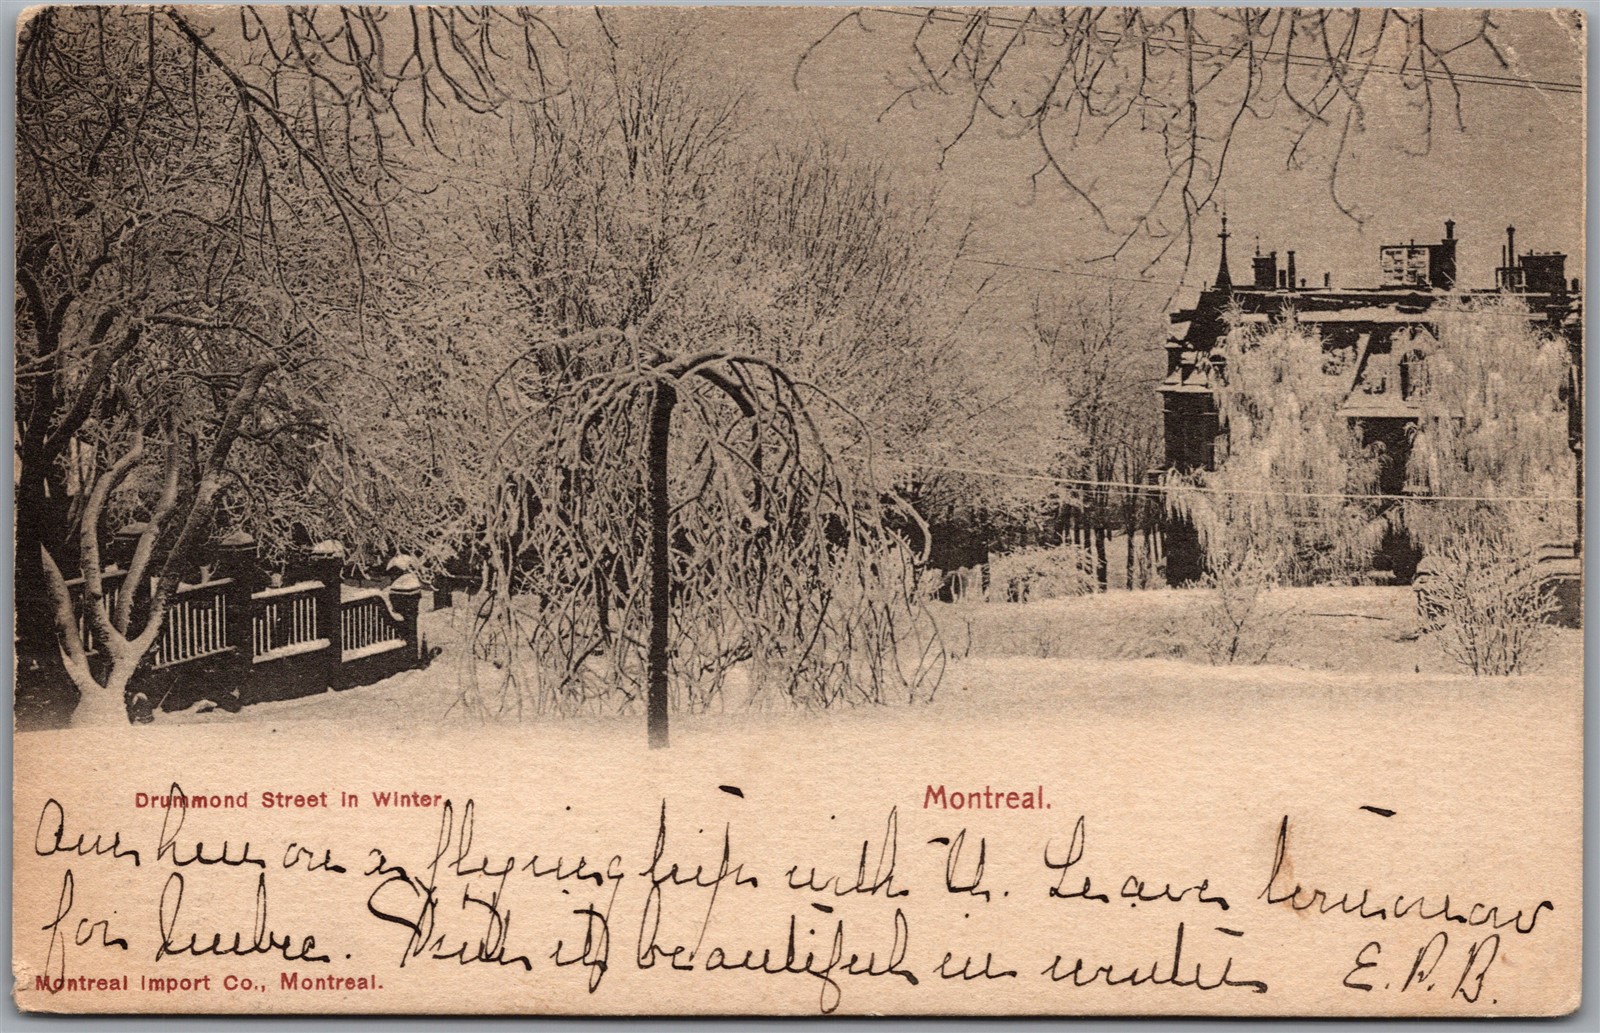 Drummond Street in Winter.
Montreal.
Am here on a flying trip with H. Leave tomorrow
for Quebec. it beautiful in winter E. P. B.
Montreal Import Co., Montreal.